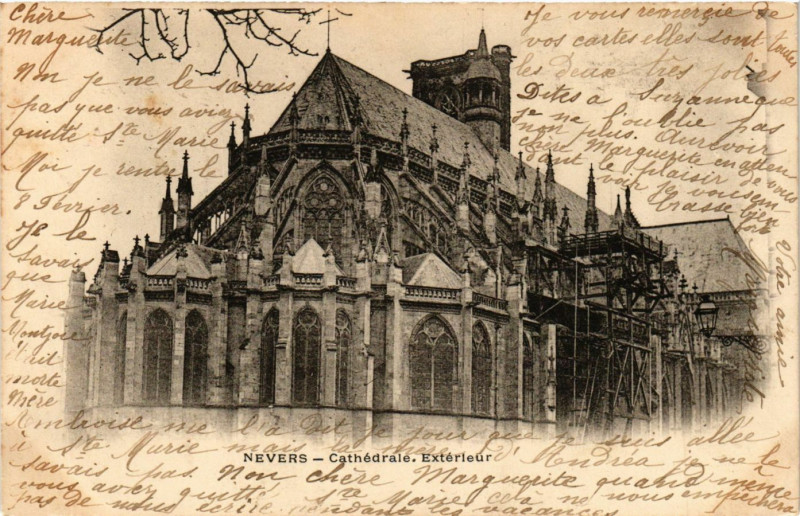 Chère
Marguerite
Non je ne le savais
pas que vous aviez
quitté Ste Marie.
Moi je rentre le
3 Février.
Je le
savais
que
Marie
Montjoie
était
morte
Mère
Amboise me l'a dit le jour que je suis allée
à Ste Marie mais le jour d'Andréa je ne le
savais pas. Non chère Marguerite quand même
vous avez quitté Ste Marie celà ne nous empêchera
pas de nous écrire pendant les vacances
Je vous remercie de
vos cartes elles sont toutes
les deux très jolies
Dites à Suzanne que
je ne l'oublie pas
non plus. Au revoir
chère Marguerite en atten
dant le plaisir de vous
voir je vous
embrasse
Votre amie
NEVERS – Cathédrale. Extérieur